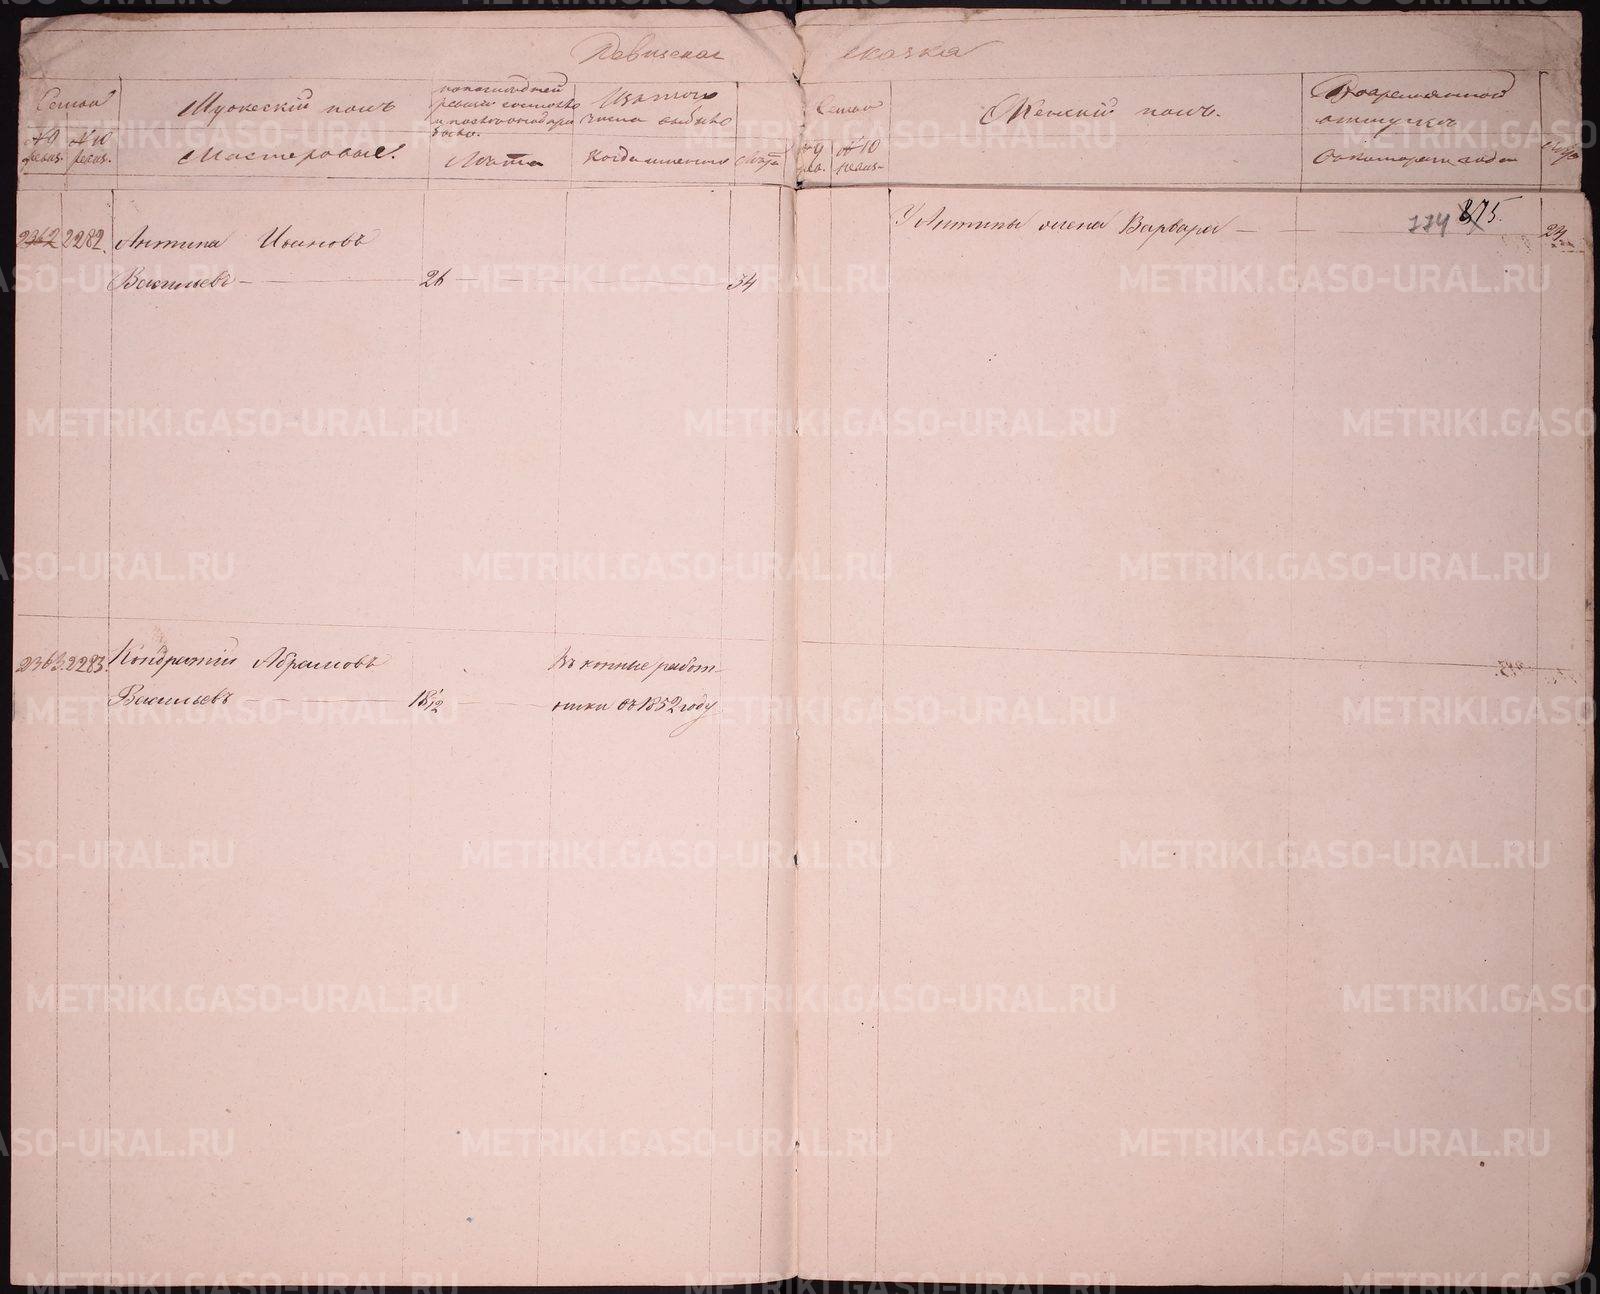 Ревизская сказка
Семьи
№ 9 ревиз.
№ 10 ревиз.
Мужеский полъ
Мастеровые.
по последней
ревизии состояло
Лета
Изъ того
числа выбыло
Когда именно
Лета
Семьи
№ 9 рев.
№ 10 ревиз.
Женскій полъ.
Во временной
отлучке
съ котораго года
Лета
2362 2282. Антипа Ивановъ
Васильевъ 26 34
У Антипы жена Варвара
774 875.
24
2363. 2283. Кондратій Абрамовъ
Васильевъ 18 1/2
Въ конные работ-
ники съ 1852 году
METRIKI.GASO-URAL.RU